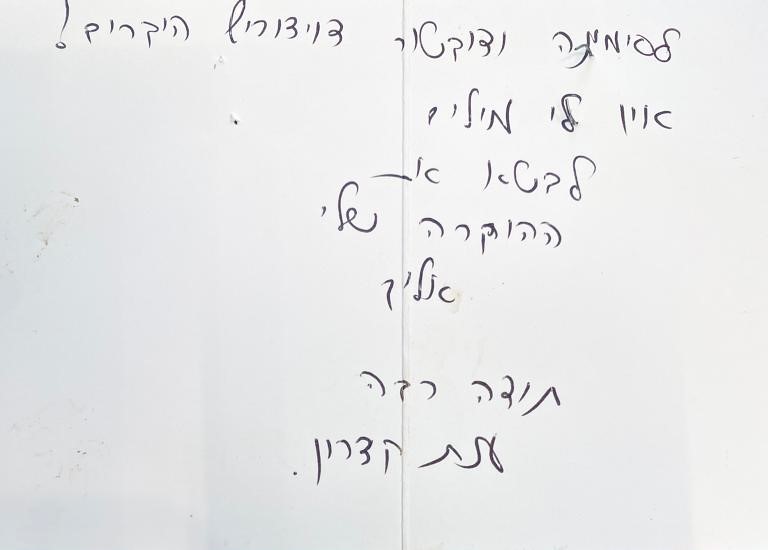 ודוקטור היקרים!
אין לי מילים
לבטא את
ההוקרה שלי
אליך
תודה רבה
ענת קדרון.